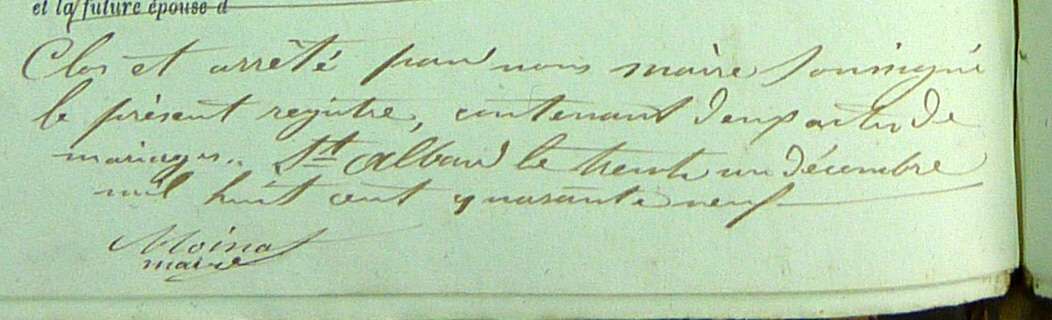 et la future épouse d
Clos et arrêté par nous maire soussigné
le présent registre, contenant deux actes de
mariages.. St Alban le trente un décembre
mil huit cent quarante neuf
Moinat
maire